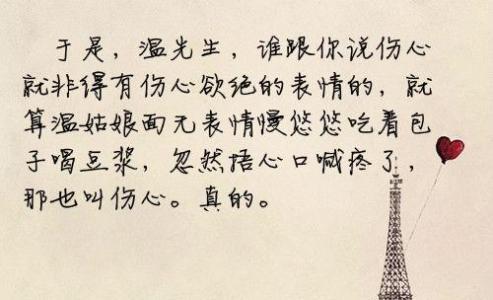 于是，温先生，谁跟你说伤心
就非得有伤心欲绝的表情的，就
算温姑娘面无表情慢悠悠吃着包
子喝豆浆，忽然捂心口喊疼了，
那也叫伤心。真的。